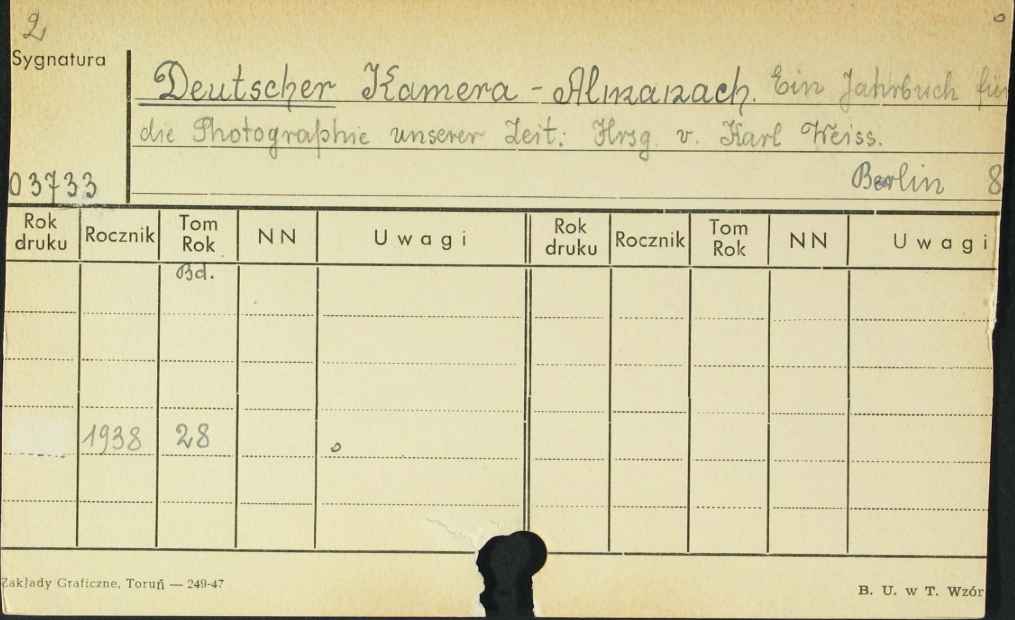 2
Sygnatura
Deutscher Kamera - Almanach. Ein Jahrbuch für
die Photographie unserer Zeit: Hrsg. v. Karl Weiss.
03733
Berlin 8
Rok druku Rocznik Tom Rok NN Uwagi Rok druku Rocznik Tom Rok NN Uwagi
Bd.
1938 28
Zakłady Graficzne, Toruń — 249-47
B. U. w T. Wzór